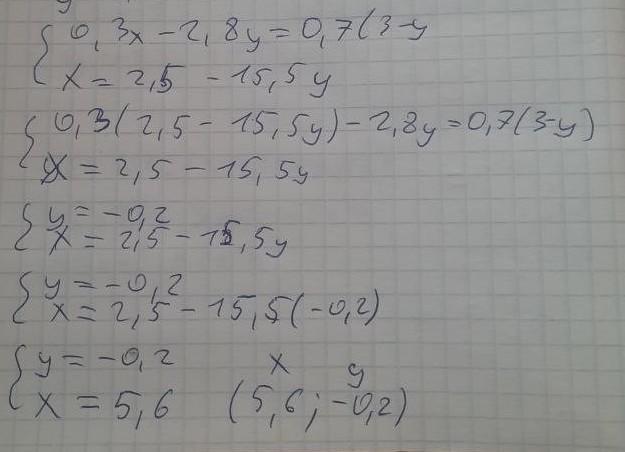 { 0,3x - 2,8y = 0,7(3-y
x = 2,5 - 15,5y
{ 0,3(2,5 - 15,5y) - 2,8y = 0,7(3-y)
x = 2,5 - 15,5y
{ y = -0,2
x = 2,5 - 15,5y
{ y = -0,2
x = 2,5 - 15,5(-0,2)
{ y = -0,2 x y
x = 5,6 (5,6; -0,2)